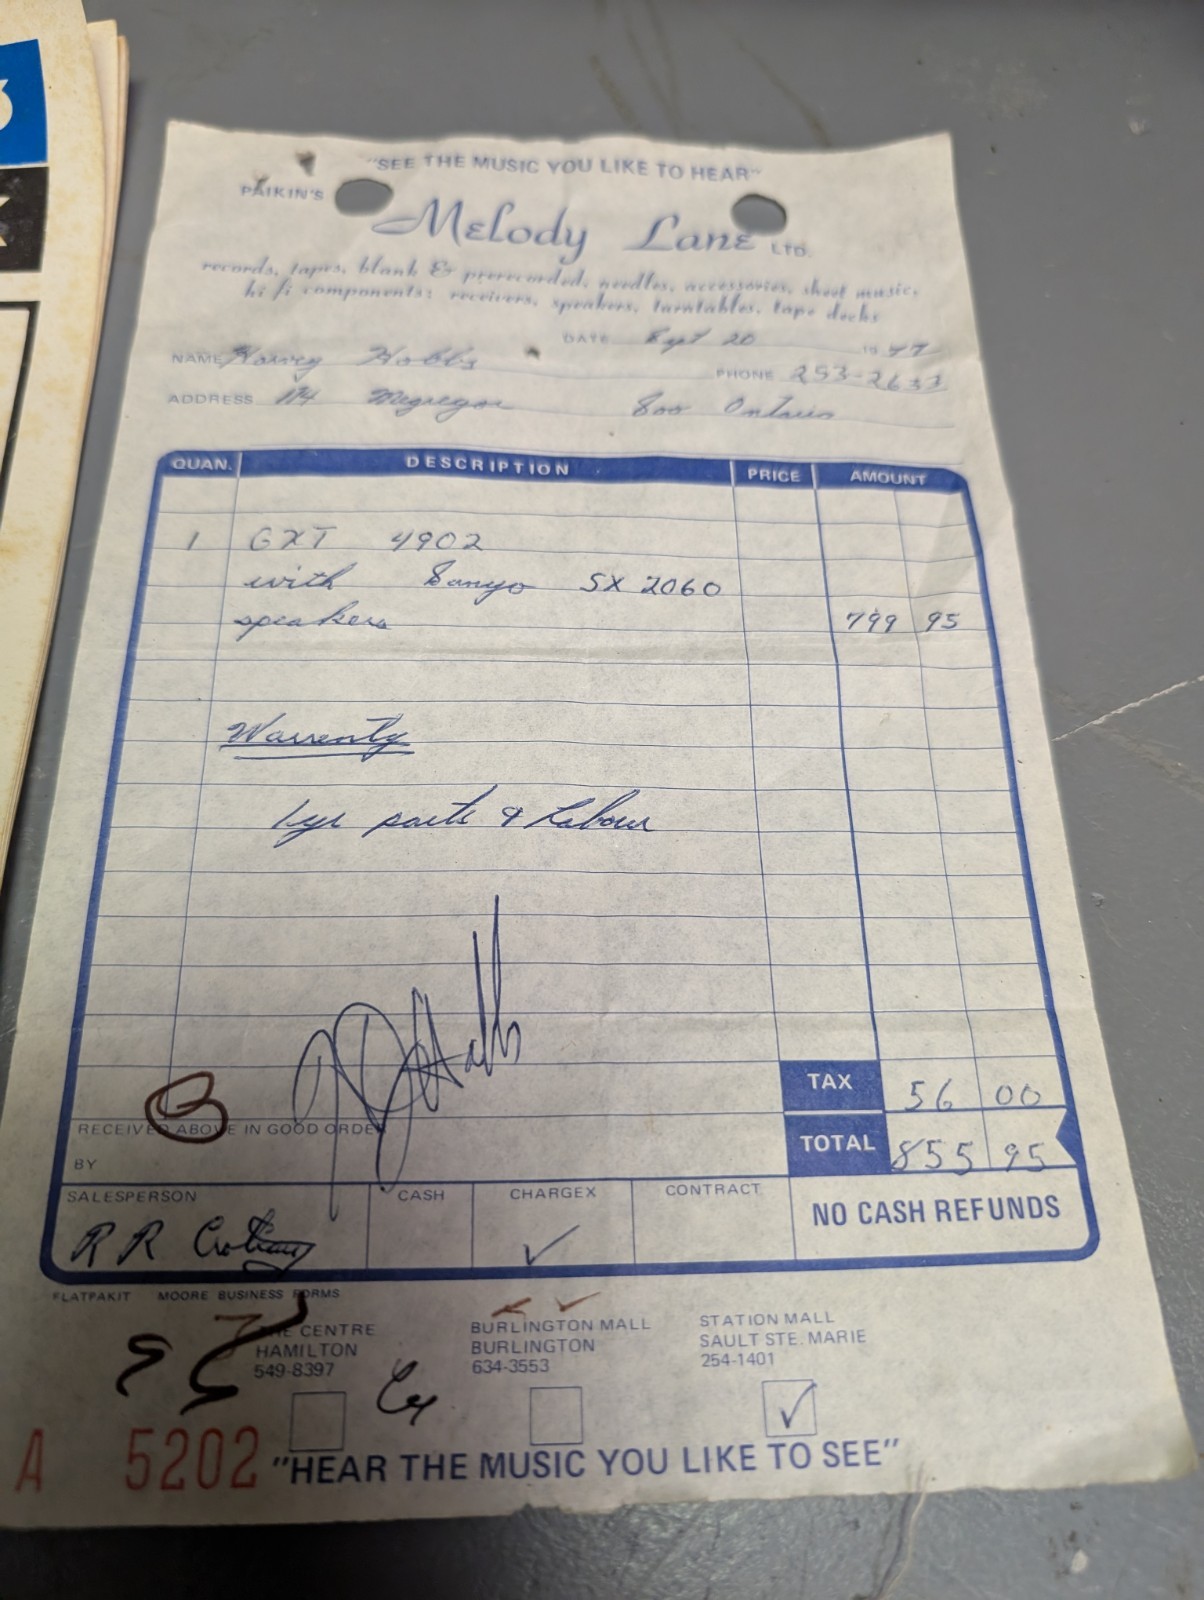 "SEE THE MUSIC YOU LIKE TO HEAR"
PAIKIN'S
Melody Lane LTD.
records, tapes, blank & prerecorded, needles, accessories, sheet music,
hi fi components: receivers, speakers, turntables, tape decks
DATE Sept 20 1977
NAME Harvey Hobbs PHONE 253-2633
ADDRESS 114 Mcgregor Soo Ontario
QUAN. DESCRIPTION PRICE AMOUNT
1 GXT 4902
with Sanyo SX 2060
speakers 799 95
Warrenty
1 yr parts & Labour
TAX 56 00
RECEIVED ABOVE IN GOOD ORDER
BY
TOTAL 855 95
SALESPERSON CASH CHARGEX CONTRACT
R R
NO CASH REFUNDS
FLATPAKIT MOORE BUSINESS FORMS
CENTRE
HAMILTON
549-8397
BURLINGTON MALL
BURLINGTON
634-3553
STATION MALL
SAULT STE. MARIE
254-1401
A 5202
"HEAR THE MUSIC YOU LIKE TO SEE"